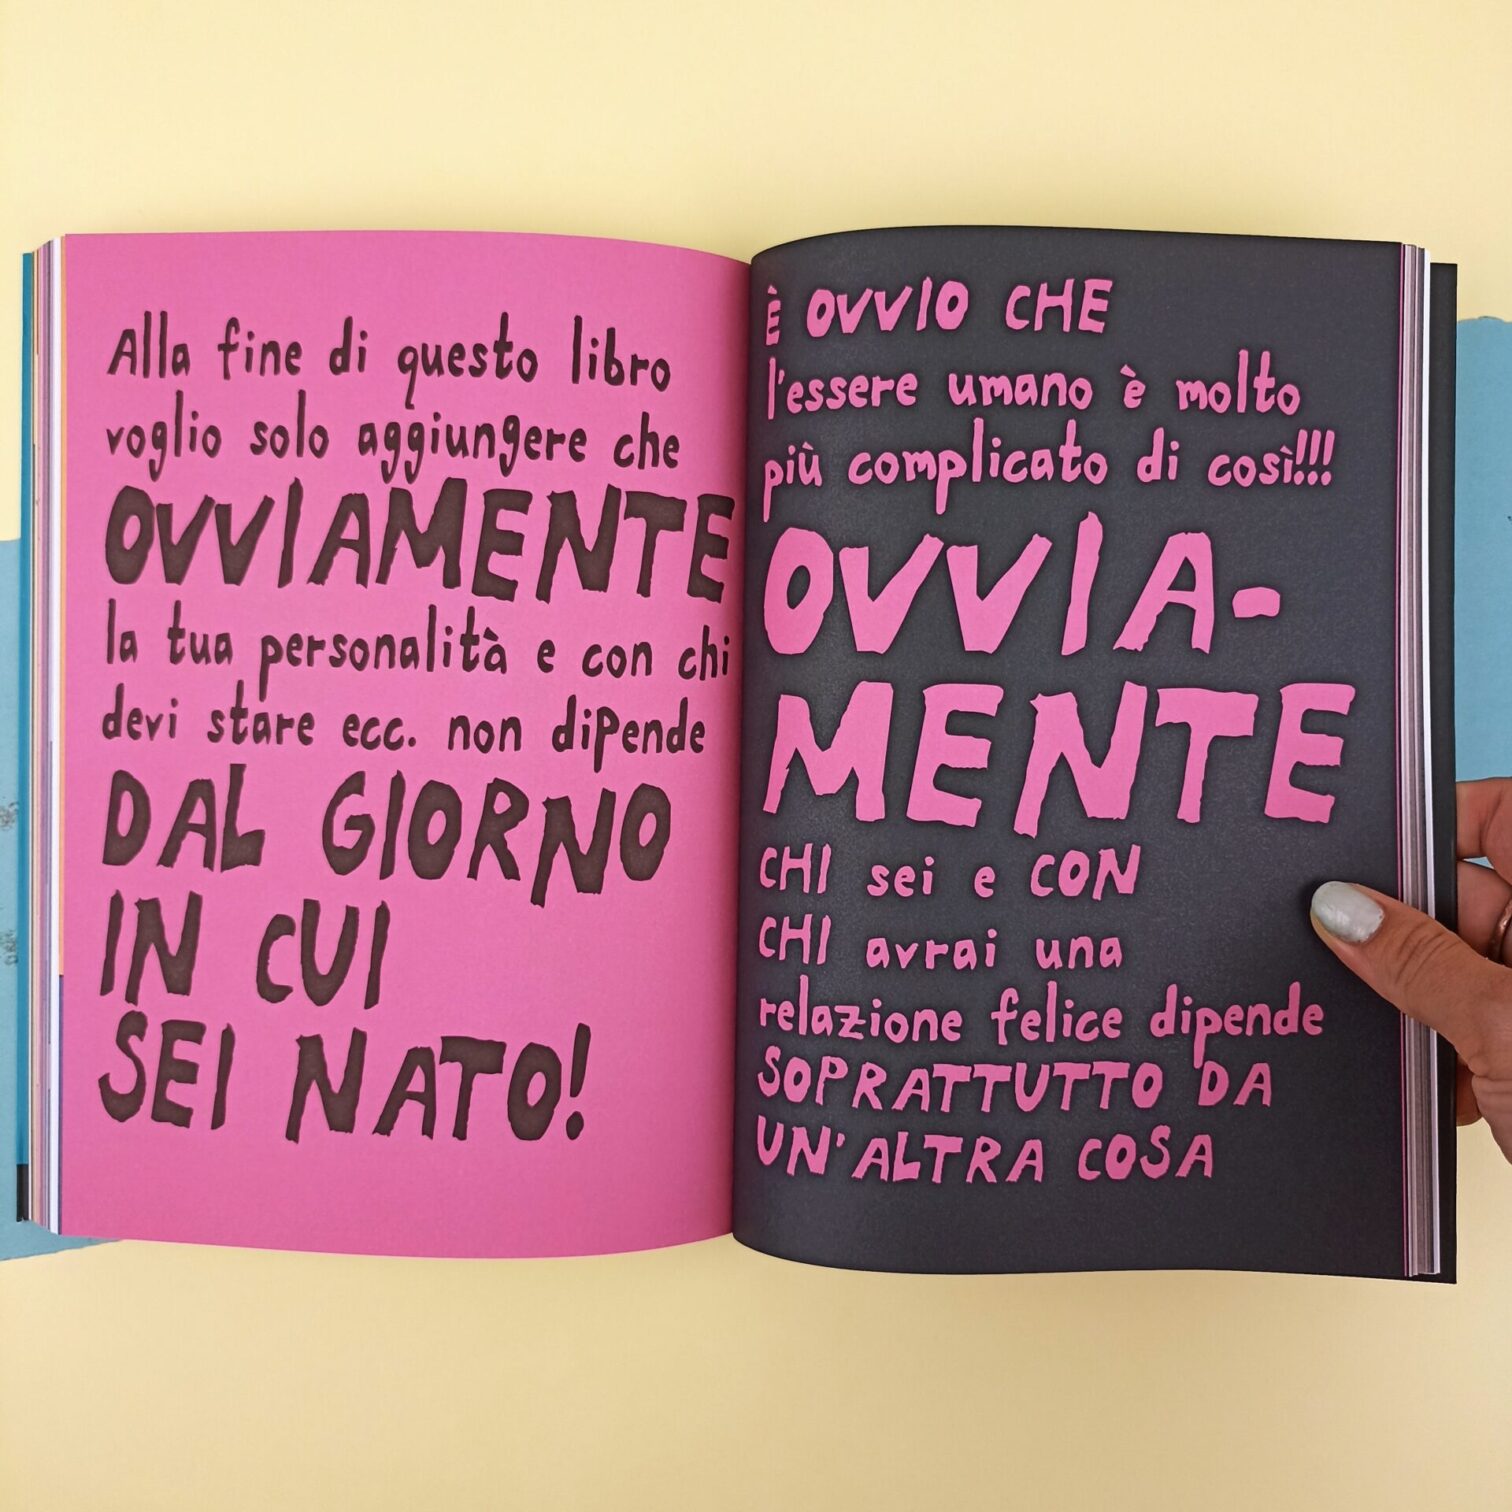 Alla fine di questo libro
voglio solo aggiungere che
OVVIAMENTE
la tua personalità e con chi
devi stare ecc. non dipende
DAL GIORNO
IN CUI
SEI NATO!
È OVVIO CHE
l'essere umano è molto
più complicato di così!!!
OVVIA-
MENTE
CHI sei e CON
CHI avrai una
relazione felice dipende
SOPRATTUTTO DA
UN'ALTRA COSA